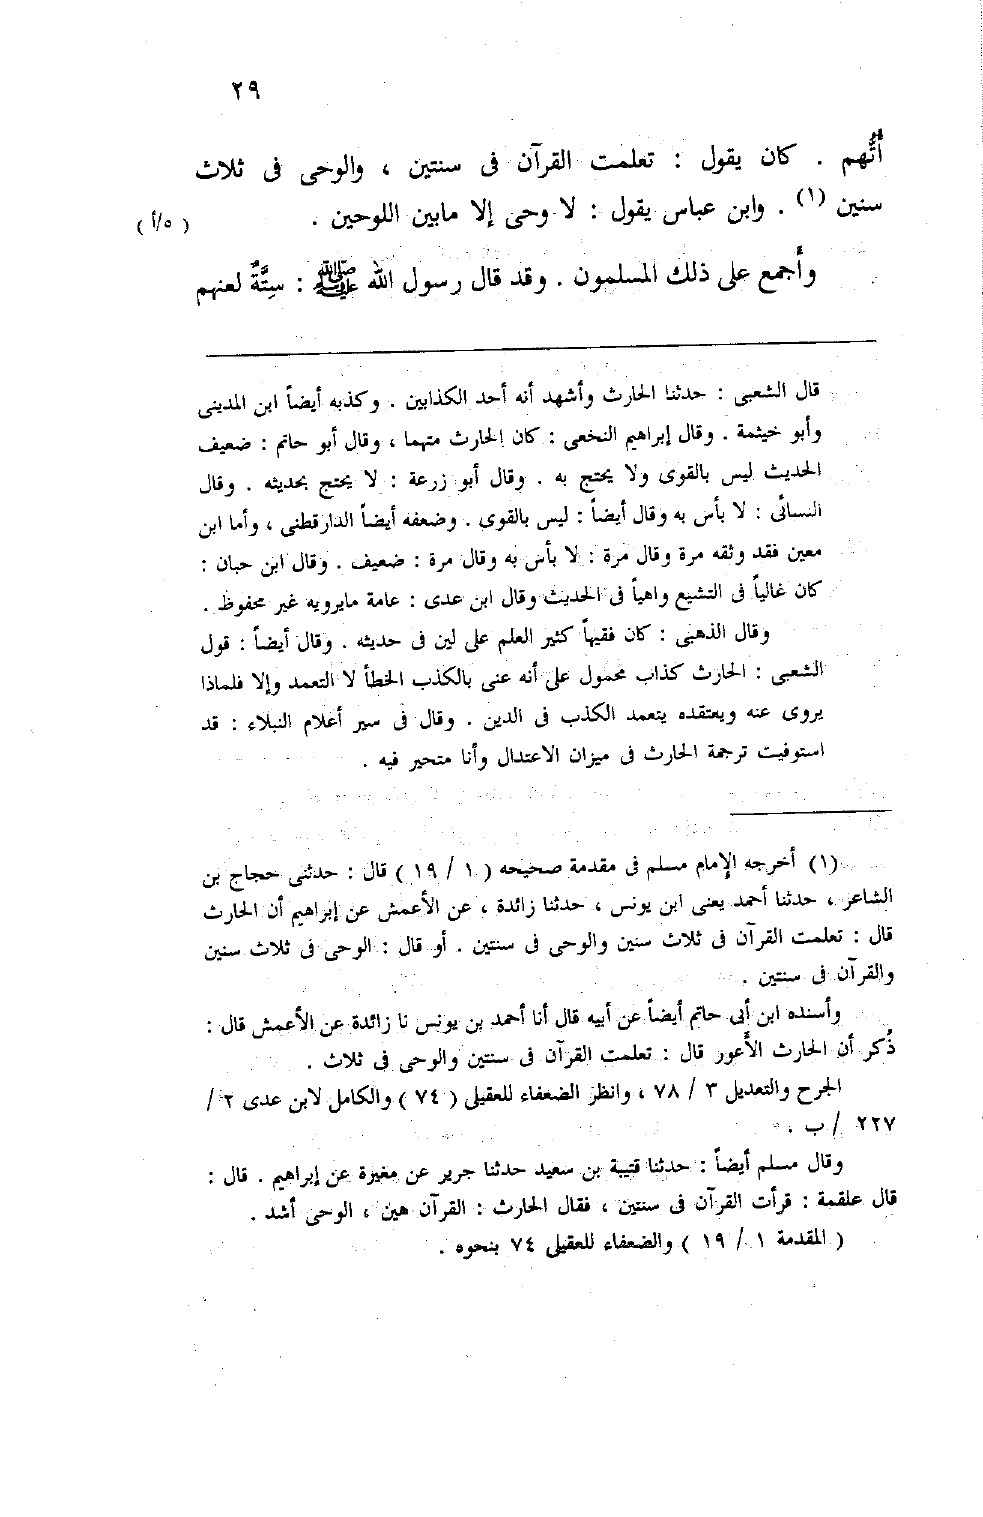 ٢٩
أتُّهم . كان يقول : تعلمت القرآن فى سنتين ، والوحى فى ثلاث
سنين (١) . وابن عباس يقول : لا وحى إلا مابين اللوحين .
( ٥/أ )
وأجمع على ذلك المسلمون . وقد قال رسول الله ﷺ : سِتَّةٌ لعنهم
قال الشعبى : حدثنا الحارث وأشهد أنه أحد الكذابين . وكذبه أيضاً ابن المدينى
وأبو خيثمة . وقال إبراهيم النخعى : كان الحارث متهما ، وقال أبو حاتم : ضعيف
الحديث ليس بالقوى ولا يحتج به . وقال أبو زرعة : لا يحتج بحديثه . وقال
النسائى : لا بأس به وقال أيضاً : ليس بالقوى . وضعفه أيضاً الدارقطنى ، وأما ابن
معين فقد وثقه مرة وقال مرة : لا بأس به وقال مرة : ضعيف . وقال ابن حبان :
كان غالياً فى التشيع واهياً فى الحديث وقال ابن عدى : عامة مايرويه غير محفوظ .
وقال الذهبى : كان فقيهاً كثير العلم على لين فى حديثه . وقال أيضاً : قول
الشعبى : الحارث كذاب محمول على أنه عنى بالكذب الخطأ لا التعمد وإلا فلماذا
يروى عنه ويعتقده يتعمد الكذب فى الدين . وقال فى سير أعلام النبلاء : قد
استوفيت ترجمة الحارث فى ميزان الاعتدال وأنا متحير فيه .
(١) أخرجه الإمام مسلم فى مقدمة صحيحه ( ١ / ١٩ ) قال : حدثنى حجاج بن
الشاعر ، حدثنا أحمد يعنى ابن يونس ، حدثنا زائدة ، عن الأعمش عن إبراهيم أن الحارث
قال : تعلمت القرآن فى ثلاث سنين والوحى فى سنتين . أو قال : الوحى فى ثلاث سنين
والقرآن فى سنتين .
وأسنده ابن أبى حاتم أيضاً عن أبيه قال أنا أحمد بن يونس نا زائدة عن الأعمش قال :
ذُكر أن الحارث الأَعور قال : تعلمت القرآن فى سنتين والوحى فى ثلاث .
الجرح والتعديل ٣ / ٧٨ ، وانظر الضعفاء للعقيلى ( ٧٤ ) والكامل لابن عدى ٢ /
٢٢٧ / ب .
وقال مسلم أيضاً : حدثنا قتيبة بن سعيد حدثنا جرير عن مغيرة عن إبراهيم . قال :
قال علقمة : قرأت القرآن فى سنتين ، فقال الحارث : القرآن هين ، الوحى أشد .
( المقدمة ١ / ١٩ ) والضعفاء للعقيلى ٧٤ بنحوه .